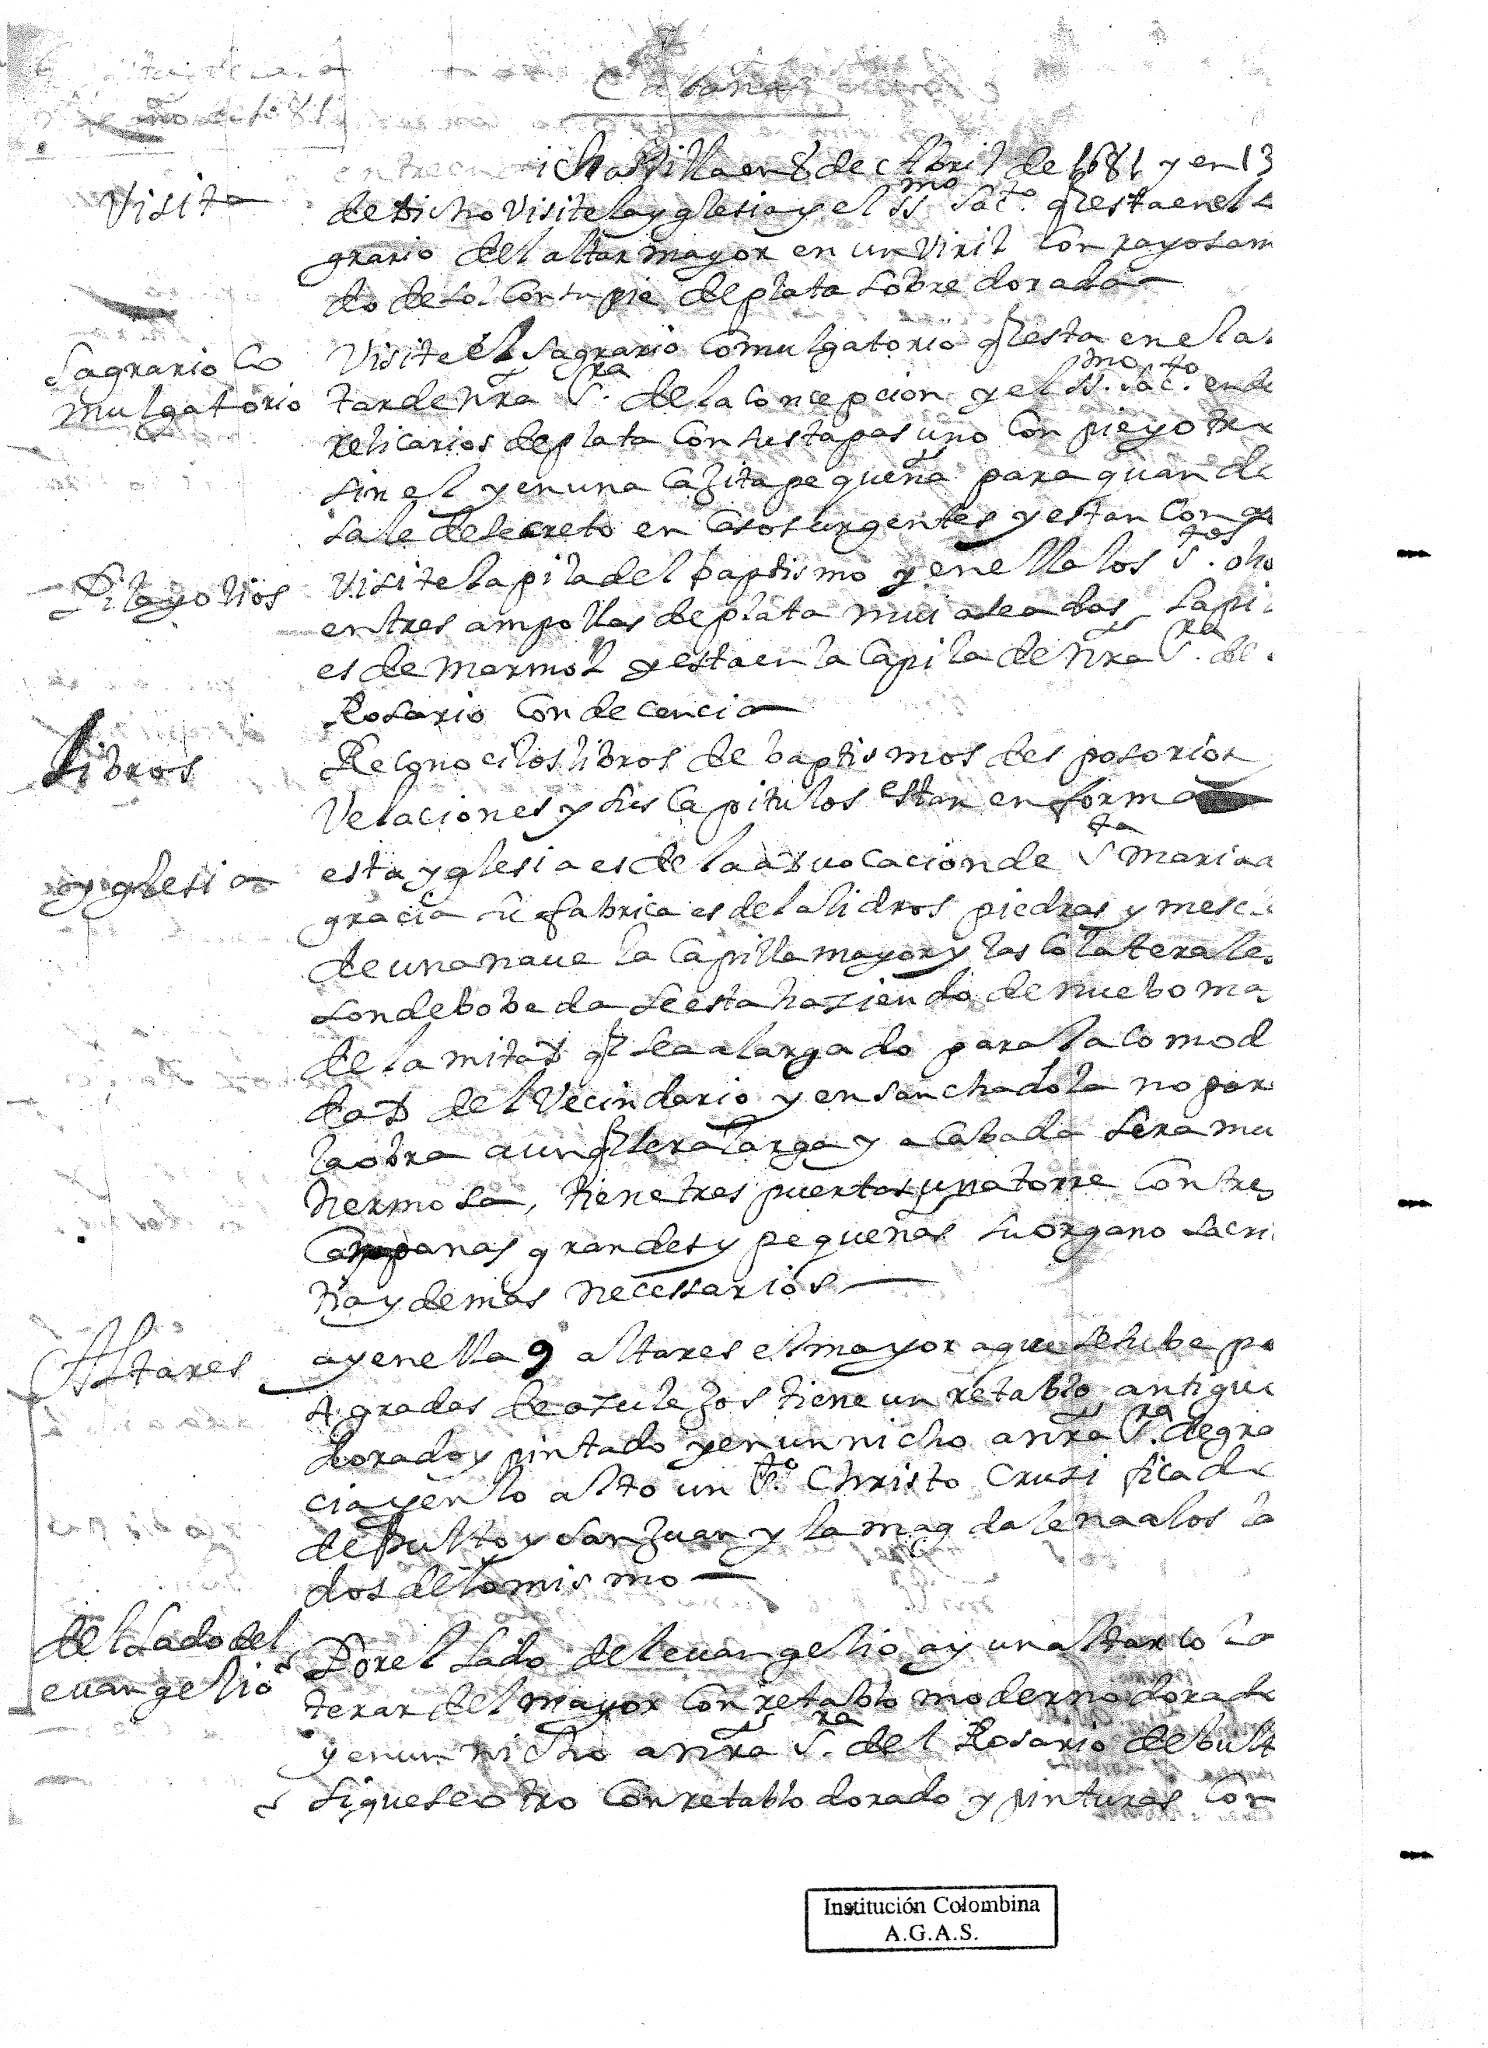 año de 1681
entre en dicha Villa en 8 de Abril de 1681 y en 13
Visita
de dicho Visite la yglesia y el SSmo Sacto. q esta en el Sa
grario del altar mayor en un Viril Con rayos a m
do de Sol Con su pie de plata sobre dorada
Sagrario Co
mulgatorio
Visite el Sagrario Comulgatorio q esta en el al
tar de nra Sra. de la Concepcion y el SSmo. Sacto. en
relicarios de plata Con sus tapas uno Con pie y otro
sin el y en una Caxita pequeña para quando
sale de secreto en Casos urgentes y estan Con
Pila y olios
Visite la pila del baptismo y en ella los Stos. olio
en tres ampollas de plata mui aseadas la pi
es de marmol y esta en la Capila de nra Sra. de
Rosario Con decencia
Libros
Reconoci los libros de baptismos desposorios
Velaciones y sus Capitulos estan en forma
yglesia
esta yglesia es de la advocacion de Sta Maria
gracia su fabrica es de ladidros piedras y mesc
de una naue la Capilla mayor y las Colaterales
son de bobeda se esta haziendo de nuebo ma
de la mitad q se a alargado para la comod
dad del Vecindario y ensanchadola no por
la obra aunq sera larga y acabada sera mu
hermosa, tiene tres puertas una torre Con tres
Campanas grandes y pequeñas su organo sacri
tia y demas necessarios
Altares
ay en ella 9 altares el mayor a que se sube po
4 gradas de azulexos tiene un retablo antiguo
dorado y pintado y en un nicho a nra Sra. de gra
cia y en lo alto un Sto. Christo Cruzificado
de bulto y San Juan y la magdalena a los la
dos de lo mismo
del lado del
euangelio
Por el lado del euangelio ay un altar cola
teral del mayor Con retablo moderno dorado
y en un nicho a nra Sra. del Rosario de bult
siguese otro Con retablo dorado y pinturas Con
Institución Colombina
A.G.A.S.